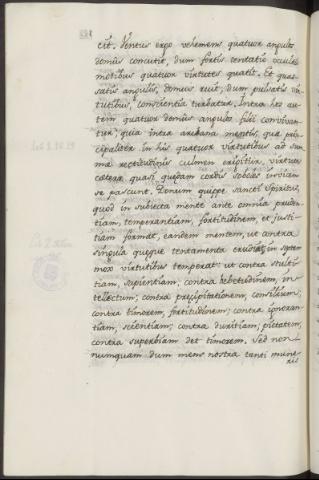 cit. Ventus ergo vehemens quatuor angulos
domus concutit, dum fortis tentatio occultis
motibus quatuor virtutes quatit. Et quas-
satis angulis, domus ruit; dum pulsatis vir-
tutibus, conscientia turbatur. Intra hos au-
tem quatuor domus angulos filii convivan-
tur: quia intra arcana mentis, quæ prin-
cipaliter in his quatuor virtutibus ad sum-
ma rectitudinis culmen erigitur, virtutes
cæteræ quasi quædam cordis soboles invicem
se pascunt. Donum quippe sancti Spiritus,
quod in subiecta mente ante omnia pruden-
tiam, temperantiam, fortitudinem, et justi-
tiam format, eandem mentem, ut contra
singula quæque tentamenta erudiat, in septem
mox virtutibus temperat: ut contra stulti-
tiam, sapientiam; contra hebetudinem, in-
tellectum; contra præcipitationem, consilium;
contra timorem, fortitudinem; contra ignoran-
tiam, scientiam; contra duritiam, pietatem;
contra superbiam det timorem. Sed non-
numquam dum mens nostra tanti mune-
ris